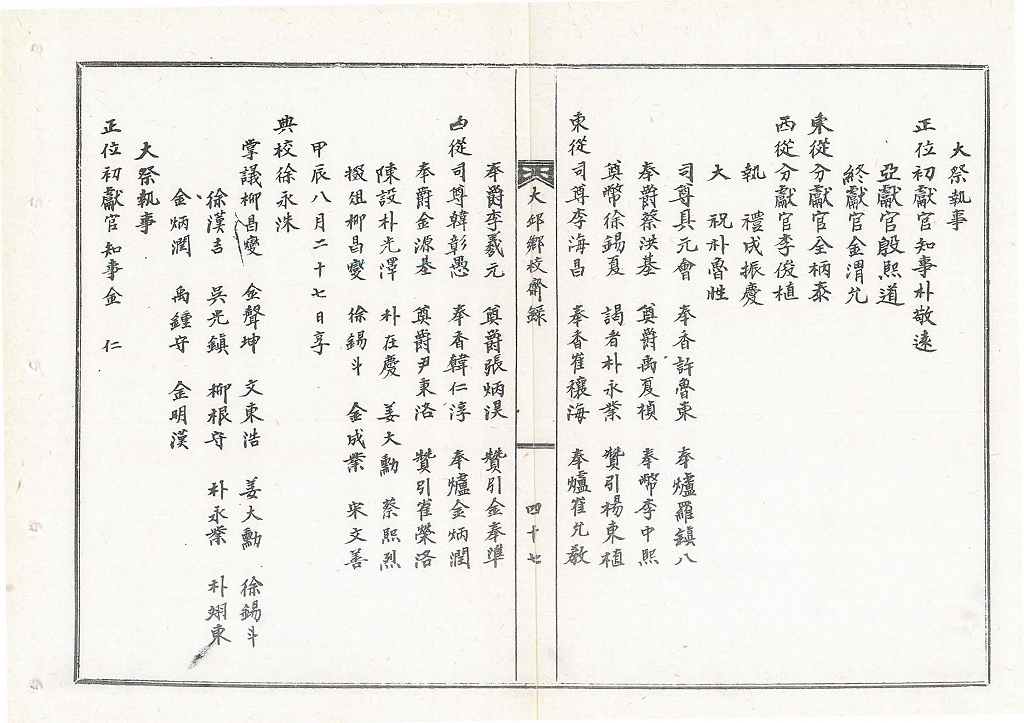 大祭執事
正位初獻官知事朴敬遠
亞獻官殷熙道
終獻官金渭允
東從分獻官全柄泰
西從分獻官李俊植
執 禮成振慶
大 祝朴魯性
司尊具元會 奉香許魯東 奉爐羅鎭八
奉爵蔡洪基 奠爵禹夏楨 奉幣李中熙
奠幣徐錫夏 謁者朴永業 贊引楊東植
東從司尊李海昌 奉香崔穰海 奉爐崔允敎
大邱鄕校齋錄
四十七
奉爵李羲元 奠爵張炳淏 贊引金奉準
西從司尊韓彰愚 奉香韓仁淳 奉爐金炳潤
奉爵金源基 奠爵尹東洛 贊引崔榮洛
陳設朴光澤 朴在慶 姜大勳 蔡熙烈
掇俎柳昌燮 徐錫斗 金成業 宋文善
甲辰八月二十七日享
典校徐永洙
掌議柳昌燮 金聲坤 文東浩 姜大勳 徐錫斗
徐漢吉 吳光鎭 柳根守 朴永業 朴翊東
金炳潤 禹鍾守 金明漢
大祭執事
正位初獻官知事金 仁